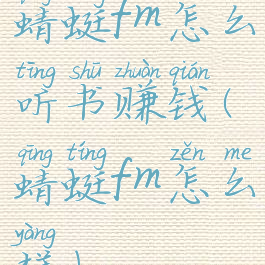 蜻蜓fm怎么
tīng shū zhuàn qián
听书赚钱(
qīng tíng zěn me
蜻蜓fm怎么
yàng